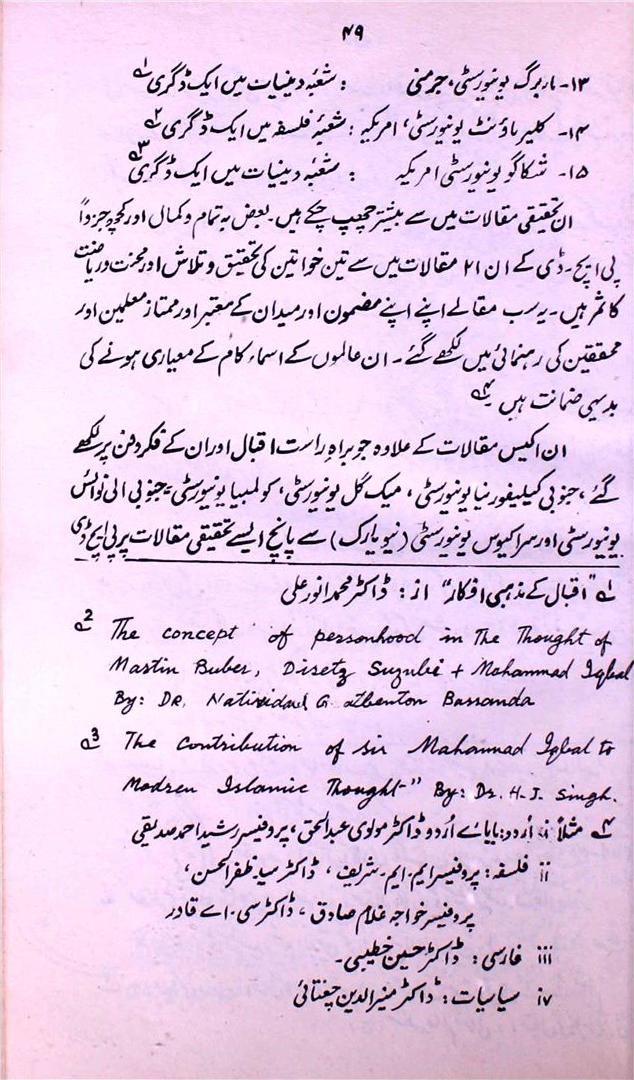 ۴۹
۱۳- ماربرگ یونیورسٹی، جرمنی : شعبۂ دینیات میں ایک ڈگری ۱؎
۱۴- کلیر ماؤنٹ یونیورسٹی، امریکہ : شعبۂ فلسفہ میں ایک ڈگری ۲؎
۱۵- شکاگو یونیورسٹی امریکہ : شعبۂ دینیات میں ایک ڈگری ۳؎
ان تحقیقی مقالات میں سے بیشتر چھپ چکے ہیں۔ بعض بہ تمام و کمال اور کچھ جزواً
پی ایچ۔ڈی کے ان ۲۱ مقالات میں سے تین خواتین کی تحقیق و تلاش اور محنت و ریاضت
کا ثمر ہیں۔ یہ سب مقالے اپنے اپنے مضمون اور میدان کے معتبر اور ممتاز معلمین اور
محققین کی رہنمائی میں لکھے گئے۔ ان عالموں کے اسماء کام کے معیاری ہونے کی
بدیہی ضمانت ہیں ۴؎
ان اکیس مقالات کے علاوہ جو براہِ راست اقبال اور ان کے فکر و فن پر لکھے
گئے، جنوبی کیلیفورنیا یونیورسٹی، میک گل یونیورسٹی، کولمبیا یونیورسٹی، جنوبی الی نوائس
یونیورسٹی اور سراکیوس یونیورسٹی (نیویارک) سے پانچ ایسے تحقیقی مقالات پر پی ایچ ڈی
۱؎ "اقبال کے مذہبی افکار" از : ڈاکٹر محمد انور علی
۲؎ The concept of personhood in The Thought of
Martin Buber, Disetz Suzuki + Mohammad Iqbal
By: DR. Natividad G.
۳؎ The contribution of sir Mahommad Iqbal to
Modren Islamic Thought" By: Dr. H. J. Singh.
۴؎ مثلاً i اُردو: بابائے اُردو ڈاکٹر مولوی عبدالحق، پروفیسر رشید احمد صدیقی
ii فلسفہ: پروفیسر ایم۔ایم۔شریف، ڈاکٹر سید ظفر الحسن،
پروفیسر خواجہ غلام صادق، ڈاکٹر سی۔اے قادر
iii فارسی: ڈاکٹر حسین خطیبی۔
iv سیاسیات: ڈاکٹر منیر الدین چغتائی